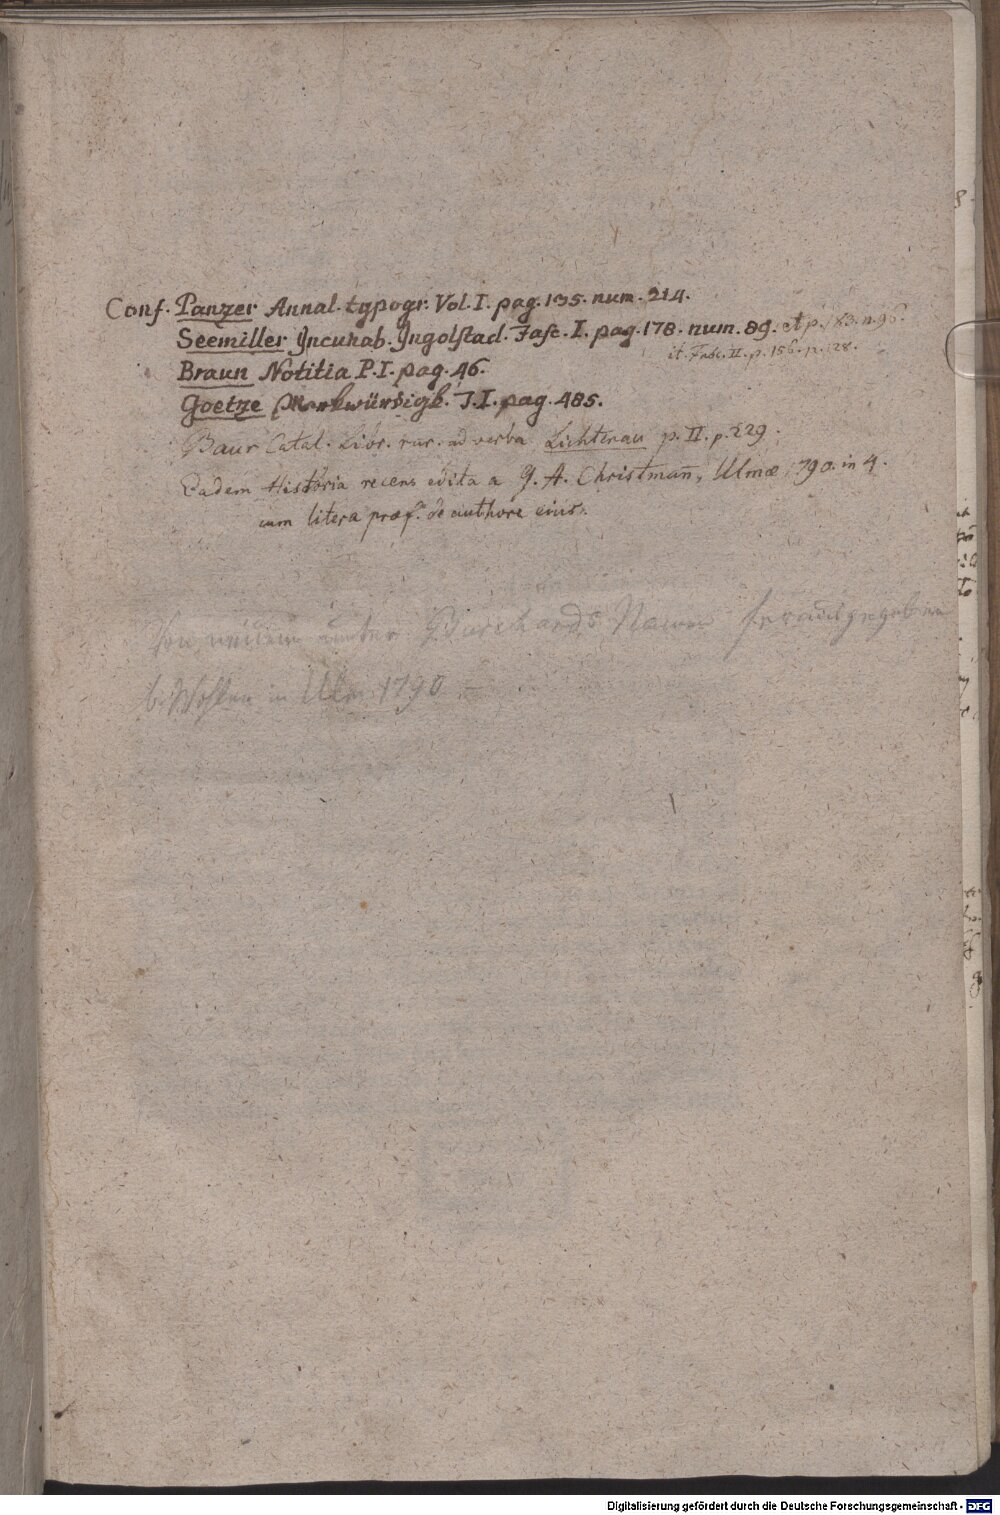 Conf. Panzer Annal. typogr. Vol. I. pag. 135. num. 214.
Seemiller Jncunab. Jngolstad. Fasc. I. pag. 178. num. 89. et p. 183. n. 96.
it. Fasc. II. p. 156. n. 128.
Braun Notitia P. I. pag. 46.
Goetze Merkwürdigk. T. I. pag. 485.
Baur Catal. Libr. rar. ad verba Lichtenau p. II. p. 229.
Eadem Historia recens edita a G. A. Christmañ, Ulmæ 1790. in 4.
cum litera præf. de authore eius.
Von neuem unter Burchards Namen herausgegeben
b. Wohler in Ulm 1790
Digitalisierung gefördert durch die Deutsche Forschungsgemeinschaft - DFG